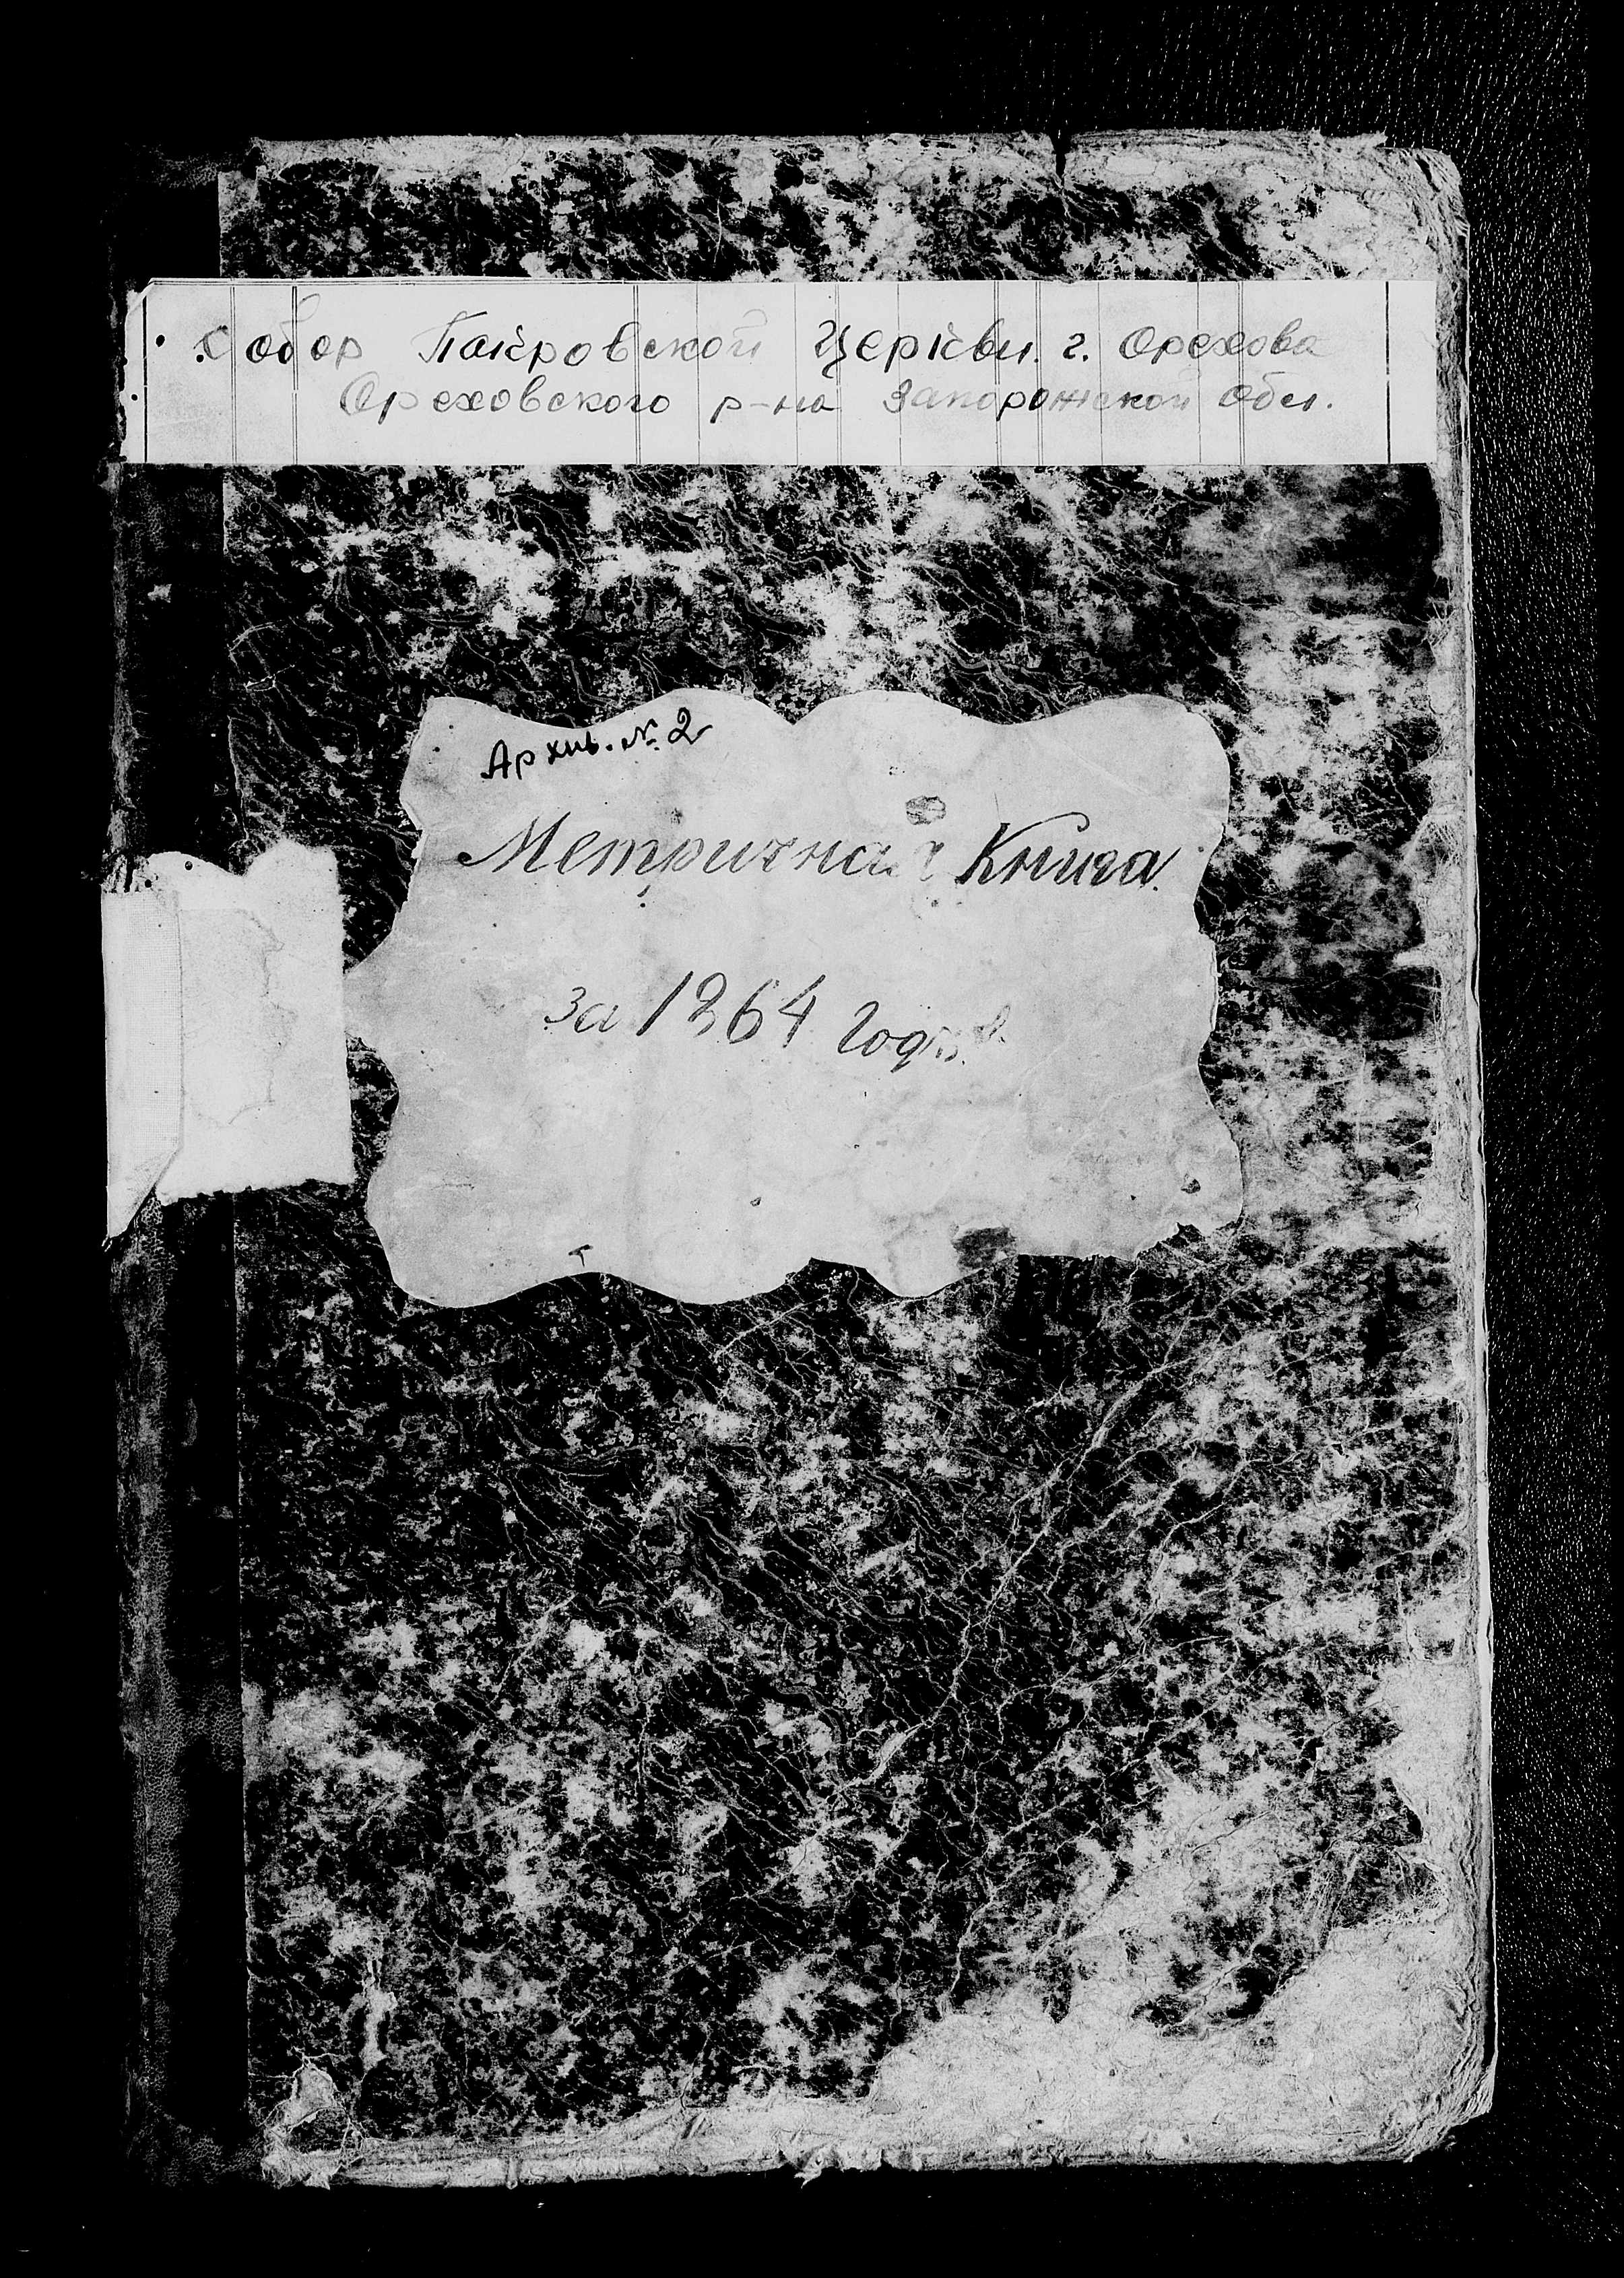 Собор Покровской Церкви. г. Орехова
Ореховского р-на Запорожской обл.
Архив. №. 2
Метричная Книга.
за 1864 годъ.